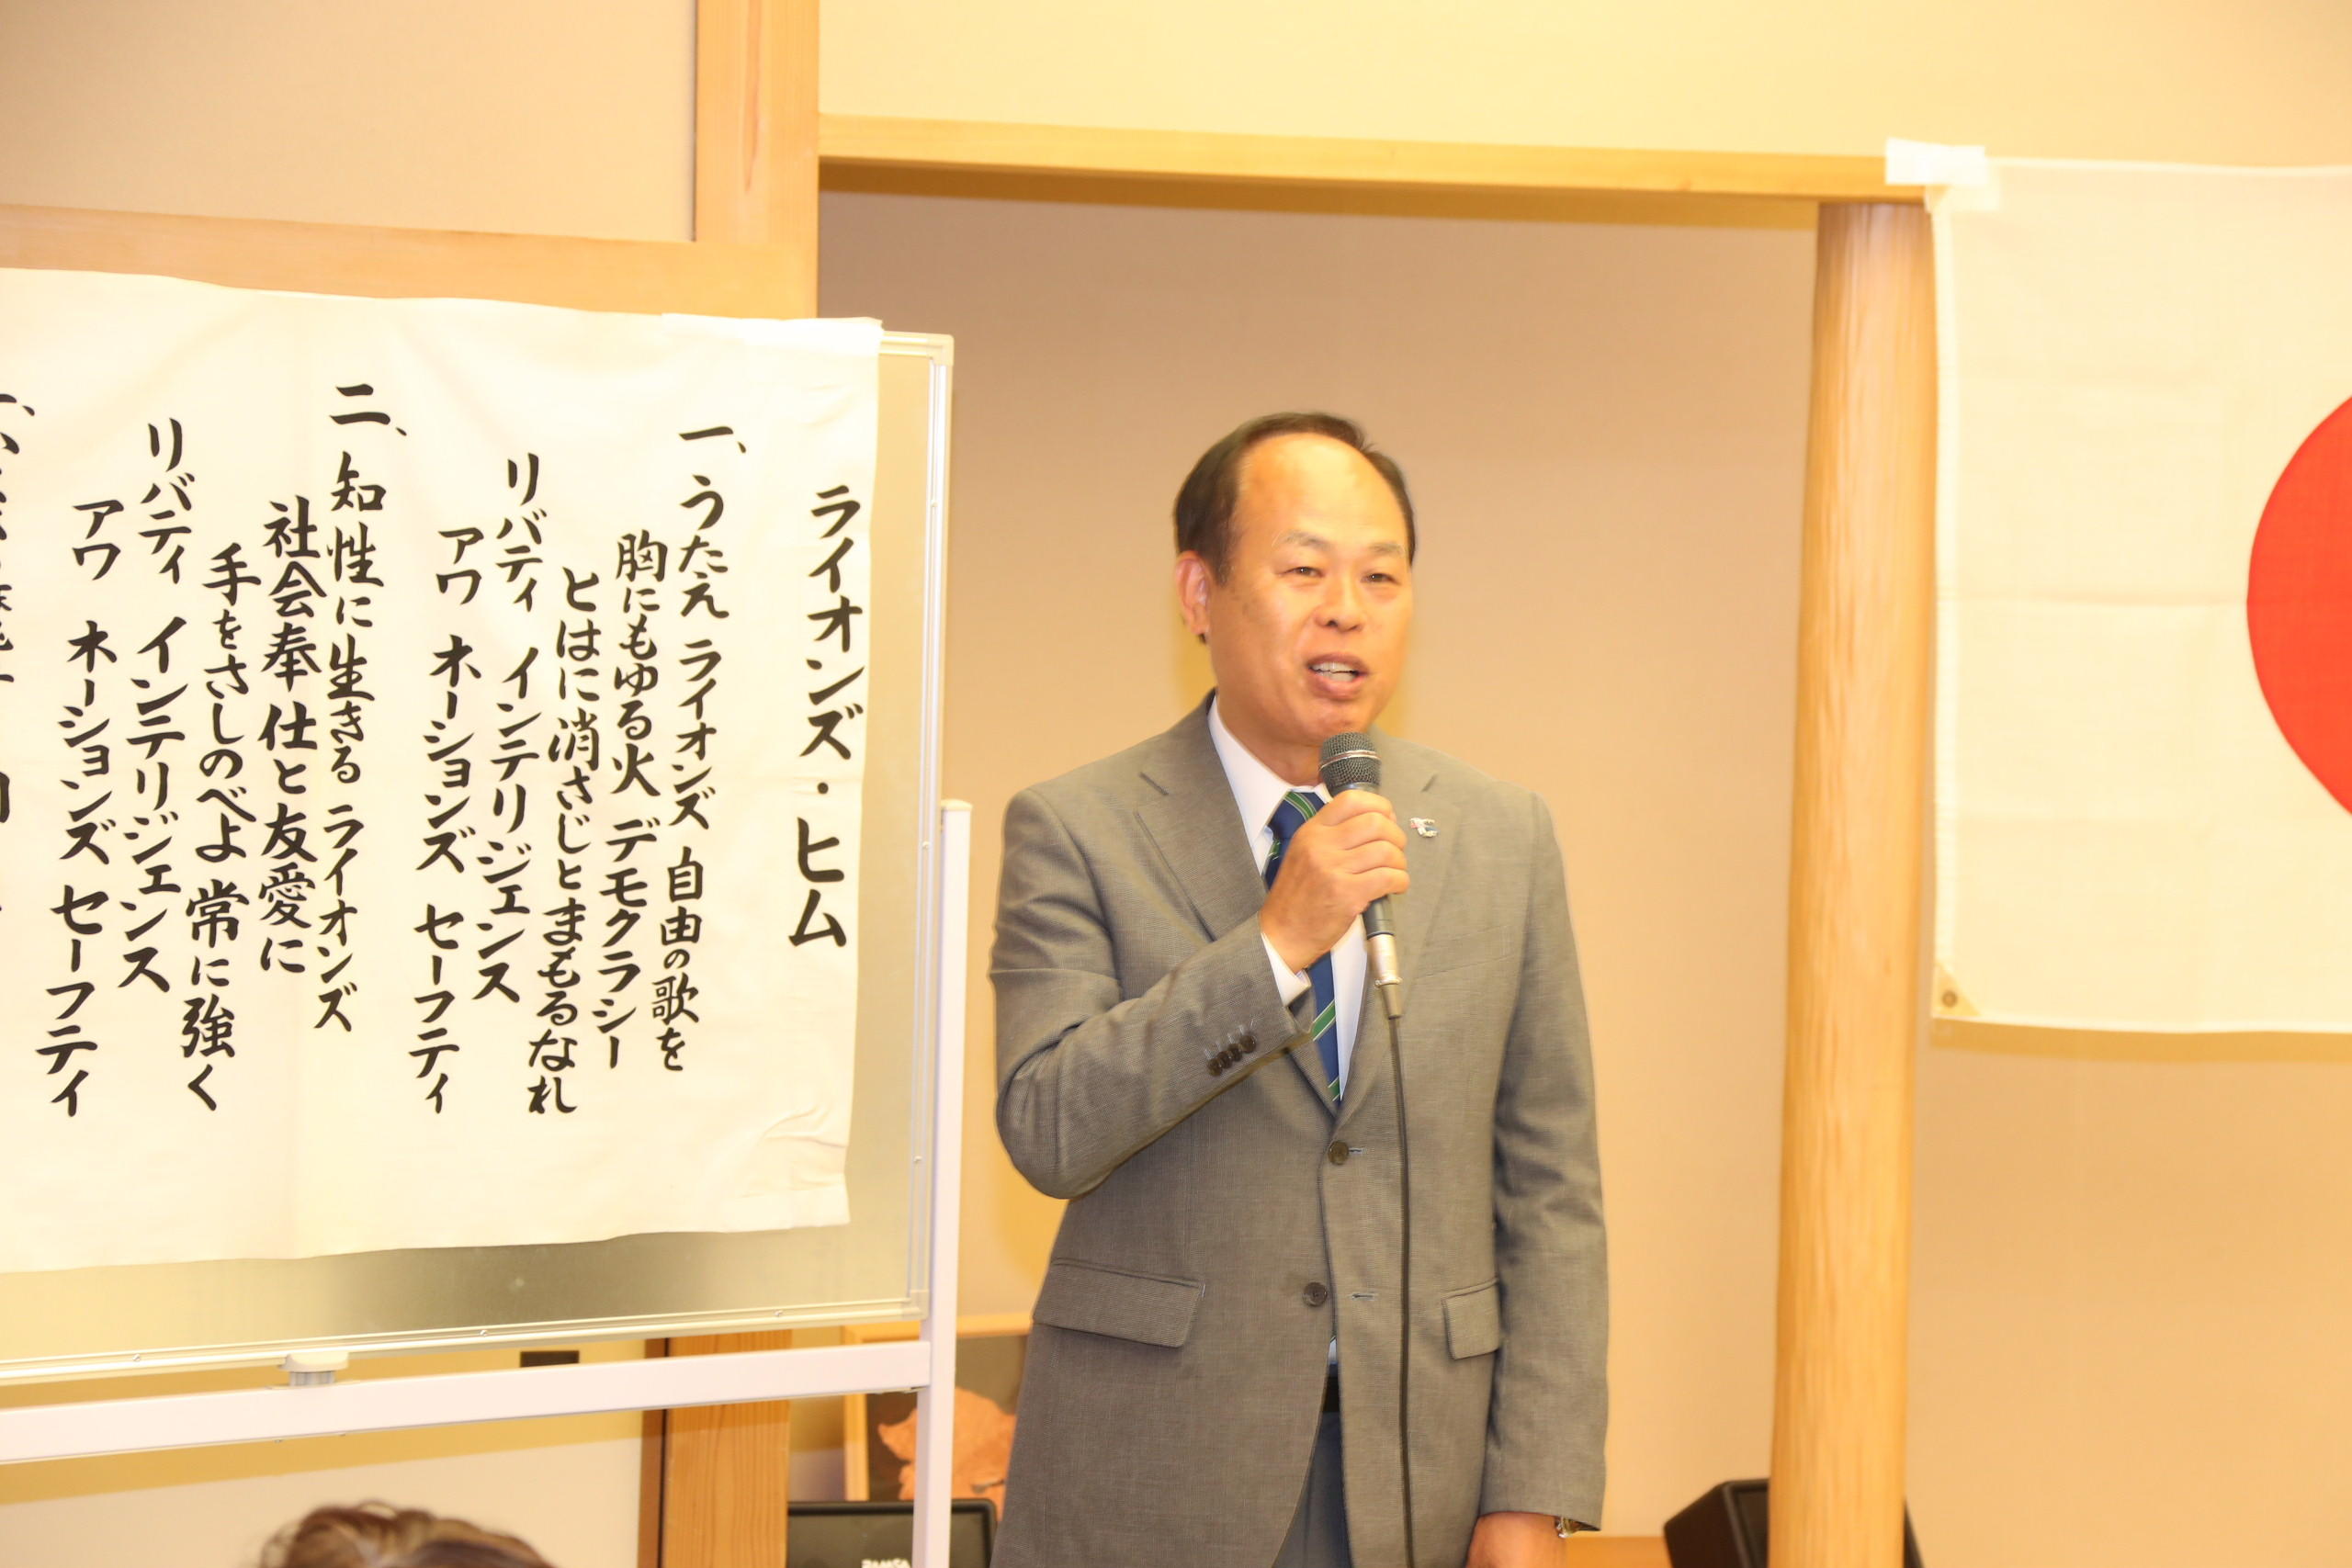 ライオンズ・ヒム
一、うたえ ライオンズ 自由の歌を
胸にもゆる火 デモクラシー
とはに消さじとまもるなれ
リバティ インテリジェンス
アワ ネーションズ セーフティ
二、知性に生きる ライオンズ
社会奉仕と友愛に
手をさしのべよ 常に強く
リバティ インテリジェンス
アワ ネーションズ セーフティ